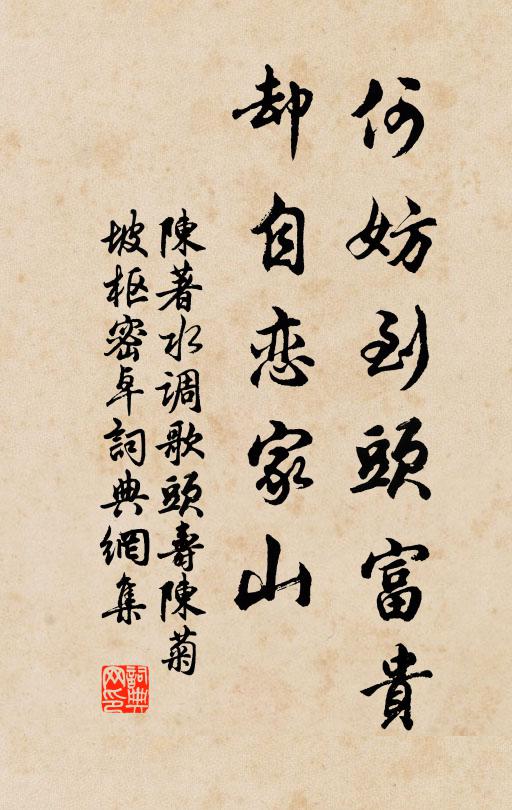 何妨到頭富貴
却自恋家山
陳著水调歌頭壽陳菊
坡枢密卓詞典網集
詞典网印